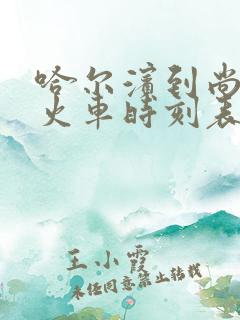 哈尔滨到尚
火车时刻表
王小霞
未经同意禁止转载